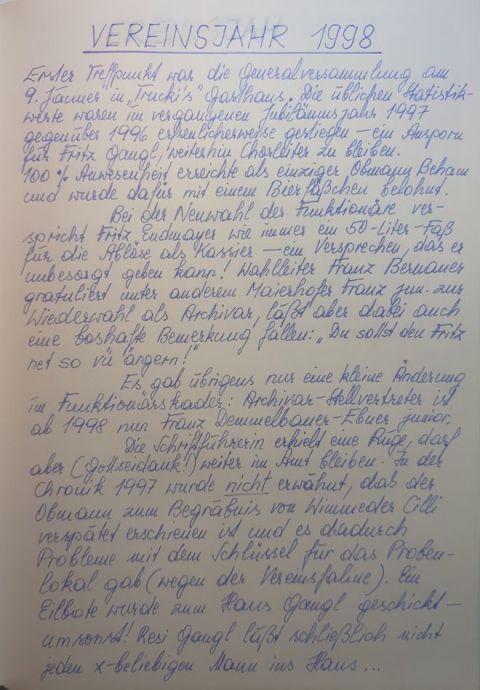 VEREINSJAHR 1998
Erster Treffpunkt war die Generalversammlung am
9. Jänner in "Trucki's" Gasthaus. Die üblichen Statistik-
werte waren im vergangenen Jubiläumsjahr 1997
gegenüber 1996 erfreulicherweise gestiegen – ein Ansporn
für Fritz Gangl, weiterhin Chorleiter zu bleiben.
100 % Anwesenheit erreichte als einziger Obmann Beham
und wurde dafür mit einem Bierfäßchen belohnt.
Bei der Neuwahl der Funktionäre ver-
spricht Fritz Endmayer wie immer ein 50-Liter-Faß
für die Ablöse als Kassier – ein Versprechen, das er
unbesorgt geben kann! Wahlleiter Franz Bernauer
gratuliert unter anderem Maierhofer Franz jun. zur
Wiederwahl als Archivar, läßt aber dabei auch
eine boshafte Bemerkung fallen: „Du sollst den Fritz
net so vü ärgern!"
Es gab übrigens nur eine kleine Änderung
im Funktionärskader: Archivar-Stellvertreter ist
ab 1998 nun Franz Demmelbauer-Ebner junior.
Die Schriftführerin erhielt eine Rüge, darf
aber (Gottseidank!) weiter im Amt bleiben. In der
Chronik 1997 wurde nicht erwähnt, daß der
Obmann zum Begräbnis von Wimmeder Cilli
verspätet erschienen ist und es dadurch
Probleme mit dem Schlüssel für das Proben-
lokal gab (wegen der Vereinsfahne). Ein
Eilbote wurde zum Haus Gangl geschickt –
umsonst! Resi Gangl läßt schließlich nicht
jeden x-beliebigen Mann ins Haus ...